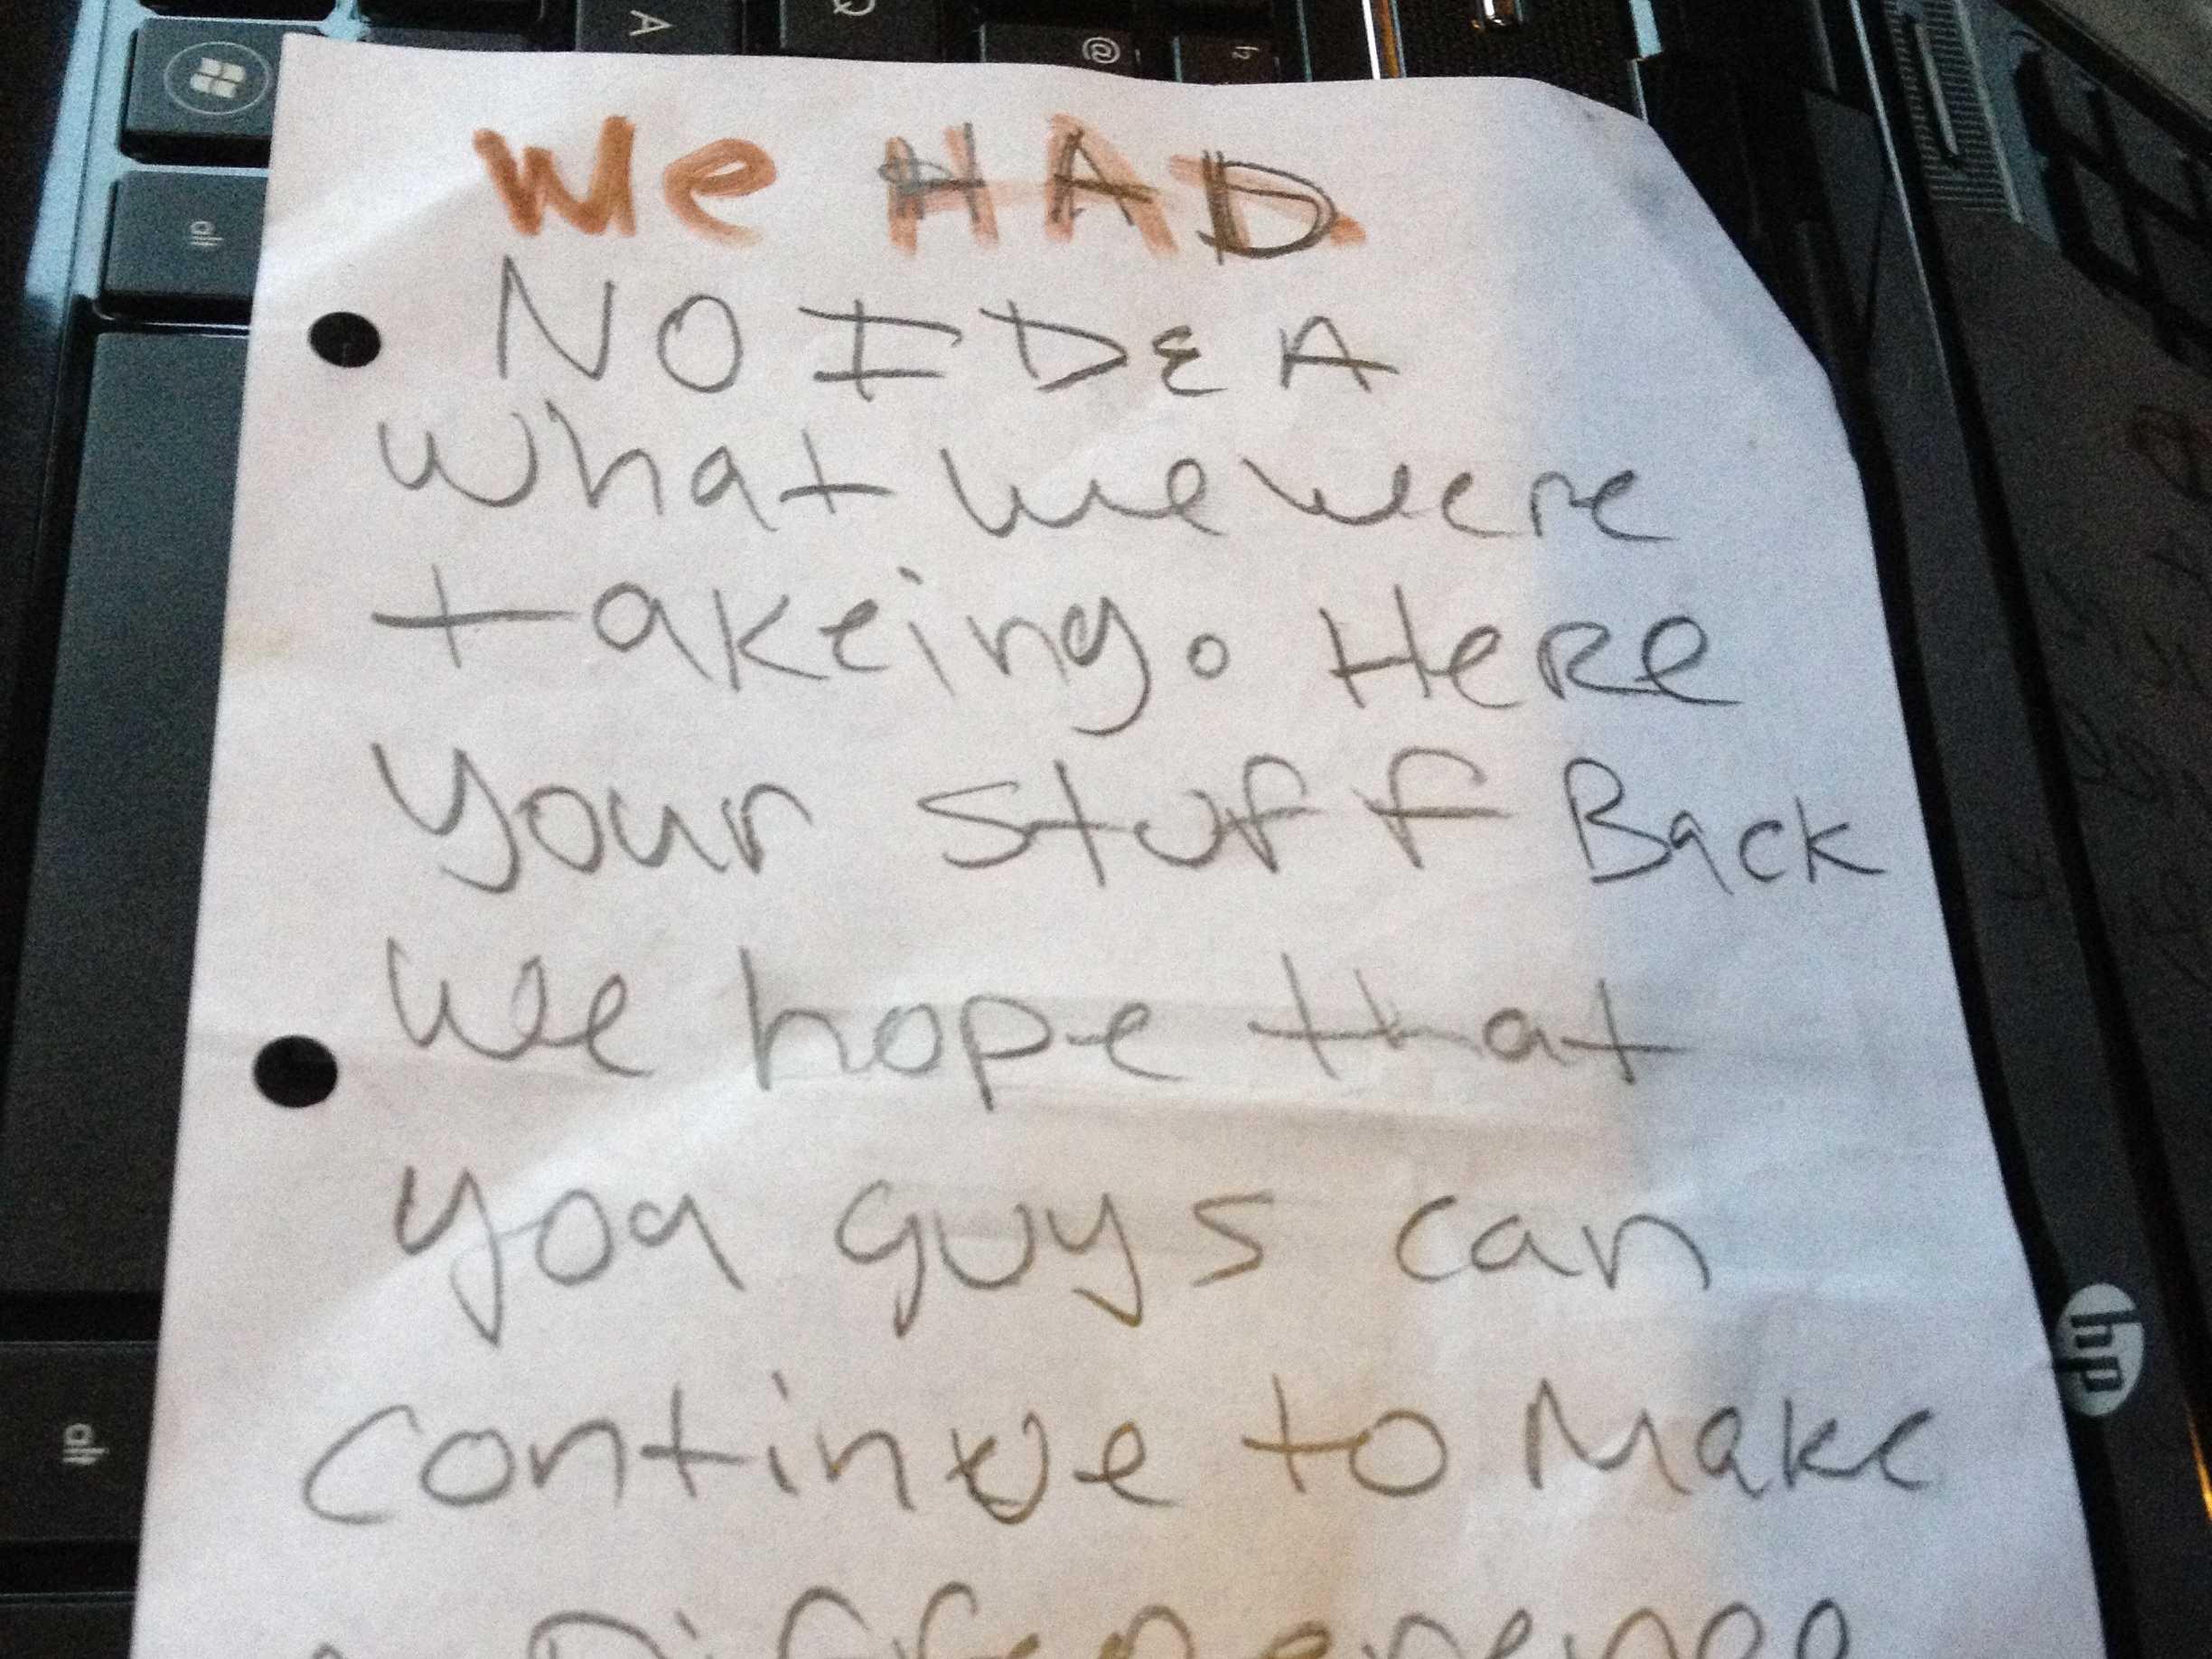 We HAD
NO IDEA
what we were
takeing. Here
your stuff Back
we hope that
you guys can
continue to Make
a Difference
hp
A
Q
@